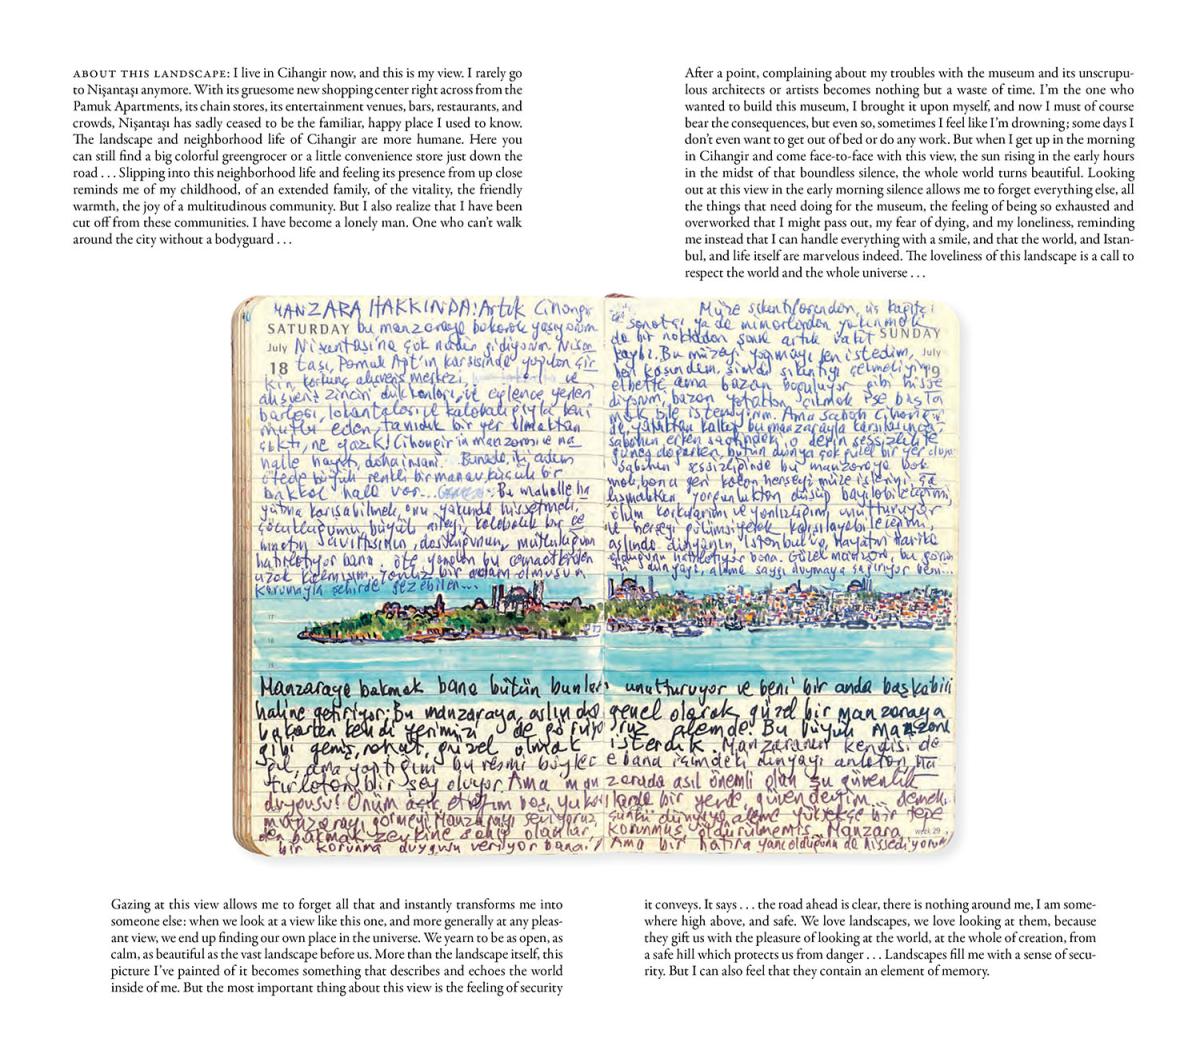 ABOUT THIS LANDSCAPE: I live in Cihangir now, and this is my view. I rarely go
to Nişantaşı anymore. With its gruesome new shopping center right across from the
Pamuk Apartments, its chain stores, its entertainment venues, bars, restaurants, and
crowds, Nişantaşı has sadly ceased to be the familiar, happy place I used to know.
The landscape and neighborhood life of Cihangir are more humane. Here you
can still find a big colorful greengrocer or a little convenience store just down the
road . . . Slipping into this neighborhood life and feeling its presence from up close
reminds me of my childhood, of an extended family, of the vitality, the friendly
warmth, the joy of a multitudinous community. But I also realize that I have been
cut off from these communities. I have become a lonely man. One who can't walk
around the city without a bodyguard . . .
After a point, complaining about my troubles with the museum and its unscrupu-
lous architects or artists becomes nothing but a waste of time. I'm the one who
wanted to build this museum, I brought it upon myself, and now I must of course
bear the consequences, but even so, sometimes I feel like I'm drowning; some days I
don't even want to get out of bed or do any work. But when I get up in the morning
in Cihangir and come face-to-face with this view, the sun rising in the early hours
in the midst of that boundless silence, the whole world turns beautiful. Looking
out at this view in the early morning silence allows me to forget everything else, all
the things that need doing for the museum, the feeling of being so exhausted and
overworked that I might pass out, my fear of dying, and my loneliness, reminding
me instead that I can handle everything with a smile, and that the world, and Istan-
bul, and life itself are marvelous indeed. The loveliness of this landscape is a call to
respect the world and the whole universe . . .
MANZARA HAKKINDA: Artık Cihangir
SATURDAY bu manzaraya bakarak yaşıyorum
July Nişantaşına çok nadir gidiyorum. Nişan
18 taşı, Pamuk Apt'ın karşısında yapılan çir
kin, korkunç alışveriş merkezi, ve
alışveriş zinciri dükkanları, ve eğlence yerleri
barları, lokantaları ve kalabalığıyla beni
mutlu eden, tanıdık bir yer olmaktan
çıktı, ne yazık! Cihangir'in manzarası ve ma
halle hayatı, daha insani. Burada, iki adım
ötede büyük renkli bir manav, küçük bir
bakkal hala var... Bu mahalle ha
yatına karışabilmek, onu yakından hissetmek,
çocukluğumu, büyük aileyi, kalabalık bir ce
maatin cıvıltısının, dostluğunun, mutluluğunu
hatırlatıyor bana. Öte yandan bu cemaatlerden
uzak kalmışım. Yalnız bir adam olmuşum.
Korumayla şehirde gezebilen...
Müze sıkıntılarından, üç kağıtçı
sanatçı ya da mimarlardan yakınmak
SUNDAY
da bir noktadan sonra artık vakit
July
kaybı. Bu müzeyi yapmayı ben istedim,
19
ben kaşındım, şimdi sıkıntıyı çekmeliyim
elbette ama bazan boğuluyor gibi hisse
diyorum, bazan yataktan çıkmak işe başla
mak bile istemiyorum. Ama sabah Cihangir
de, yataktan kalkıp bu manzarayla karşılaşınca,
sabahın erken saatindeki o derin sessizlikte
güneş doğarken, bütün dünya çok güzel bir yer oluyor
sabahın sessizliğinde bu manzaraya bak
mak, bana geri kalan herşeyi müze işlerini, ça
lışmaktan yorgunluktan düşüp bayılabileceğimi,
ölüm korkularımı ve yalnızlığımı unutturuyor
ve herşeyi gülümsiyerek karşılayabileceğimi,
aslında dünyanın, İstanbul'un, Hayatın harika
olduğunu hatırlatıyor bana. Güzel manzara, bu görün
tü dünyayı, aleme saygı duymaya çağırıyor beni...
17
18
19
Manzaraya bakmak bana bütün bunları unutturuyor ve beni bir anda başka biri
haline getiriyor: Bu manzaraya, aslında genel olarak, güzel bir manzaraya
bakarken kendi yerimizi de görüyoruz alemde. Bu büyük manzara
gibi geniş, rahat, güzel olmak isterdik. Manzaranın kendisi de
ğil, ama yaptığım bu resmi böylece bana içimdeki dünyayı anlatan, ha
tırlatan bir şey oluyor. Ama manzarada asıl önemli olan şu güvenlik
duygusu: Önüm açık, etrafım boş, yukarlarda bir yerde, güvendeyim demek.
Manzarayı görmeyi, Manzarayı seviyoruz çünkü dünyaya, aleme yüksekçe bir tepe
den bakmak zevkine sahip olanlar, korunmuş, öldürülmemiş. Manzara week 29
bir korunma duygusu veriyor bana. Ama bir hatıra yanı olduğunu da hissediyorum
Gazing at this view allows me to forget all that and instantly transforms me into
someone else: when we look at a view like this one, and more generally at any pleas-
ant view, we end up finding our own place in the universe. We yearn to be as open, as
calm, as beautiful as the vast landscape before us. More than the landscape itself, this
picture I've painted of it becomes something that describes and echoes the world
inside of me. But the most important thing about this view is the feeling of security
it conveys. It says . . . the road ahead is clear, there is nothing around me, I am some-
where high above, and safe. We love landscapes, we love looking at them, because
they gift us with the pleasure of looking at the world, at the whole of creation, from
a safe hill which protects us from danger . . . Landscapes fill me with a sense of secu-
rity. But I can also feel that they contain an element of memory.